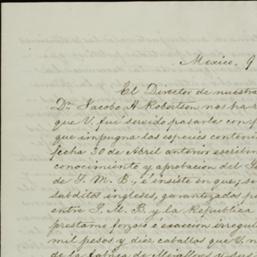 Mexico, 9
El Director de nuestra
Dn. Jacobo A. Robertson nos ha
que V. fué servido pasarle con
que impugna las especies conten
fecha 30 de Abril anterior
conocimiento y aprobacion del
de S. M. B., é insiste en que,
subditos ingleses, garantizados
entre S. M. B. y la Republica
préstamo forzoso é exaccion irregul
mil pesos y diez caballos que V.
de la fabrica de Miraflores y